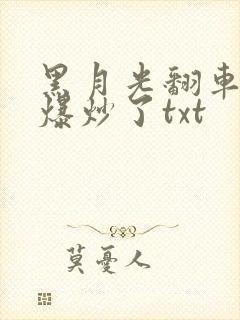 黑月光翻車
爆炒了txt
莫憂人